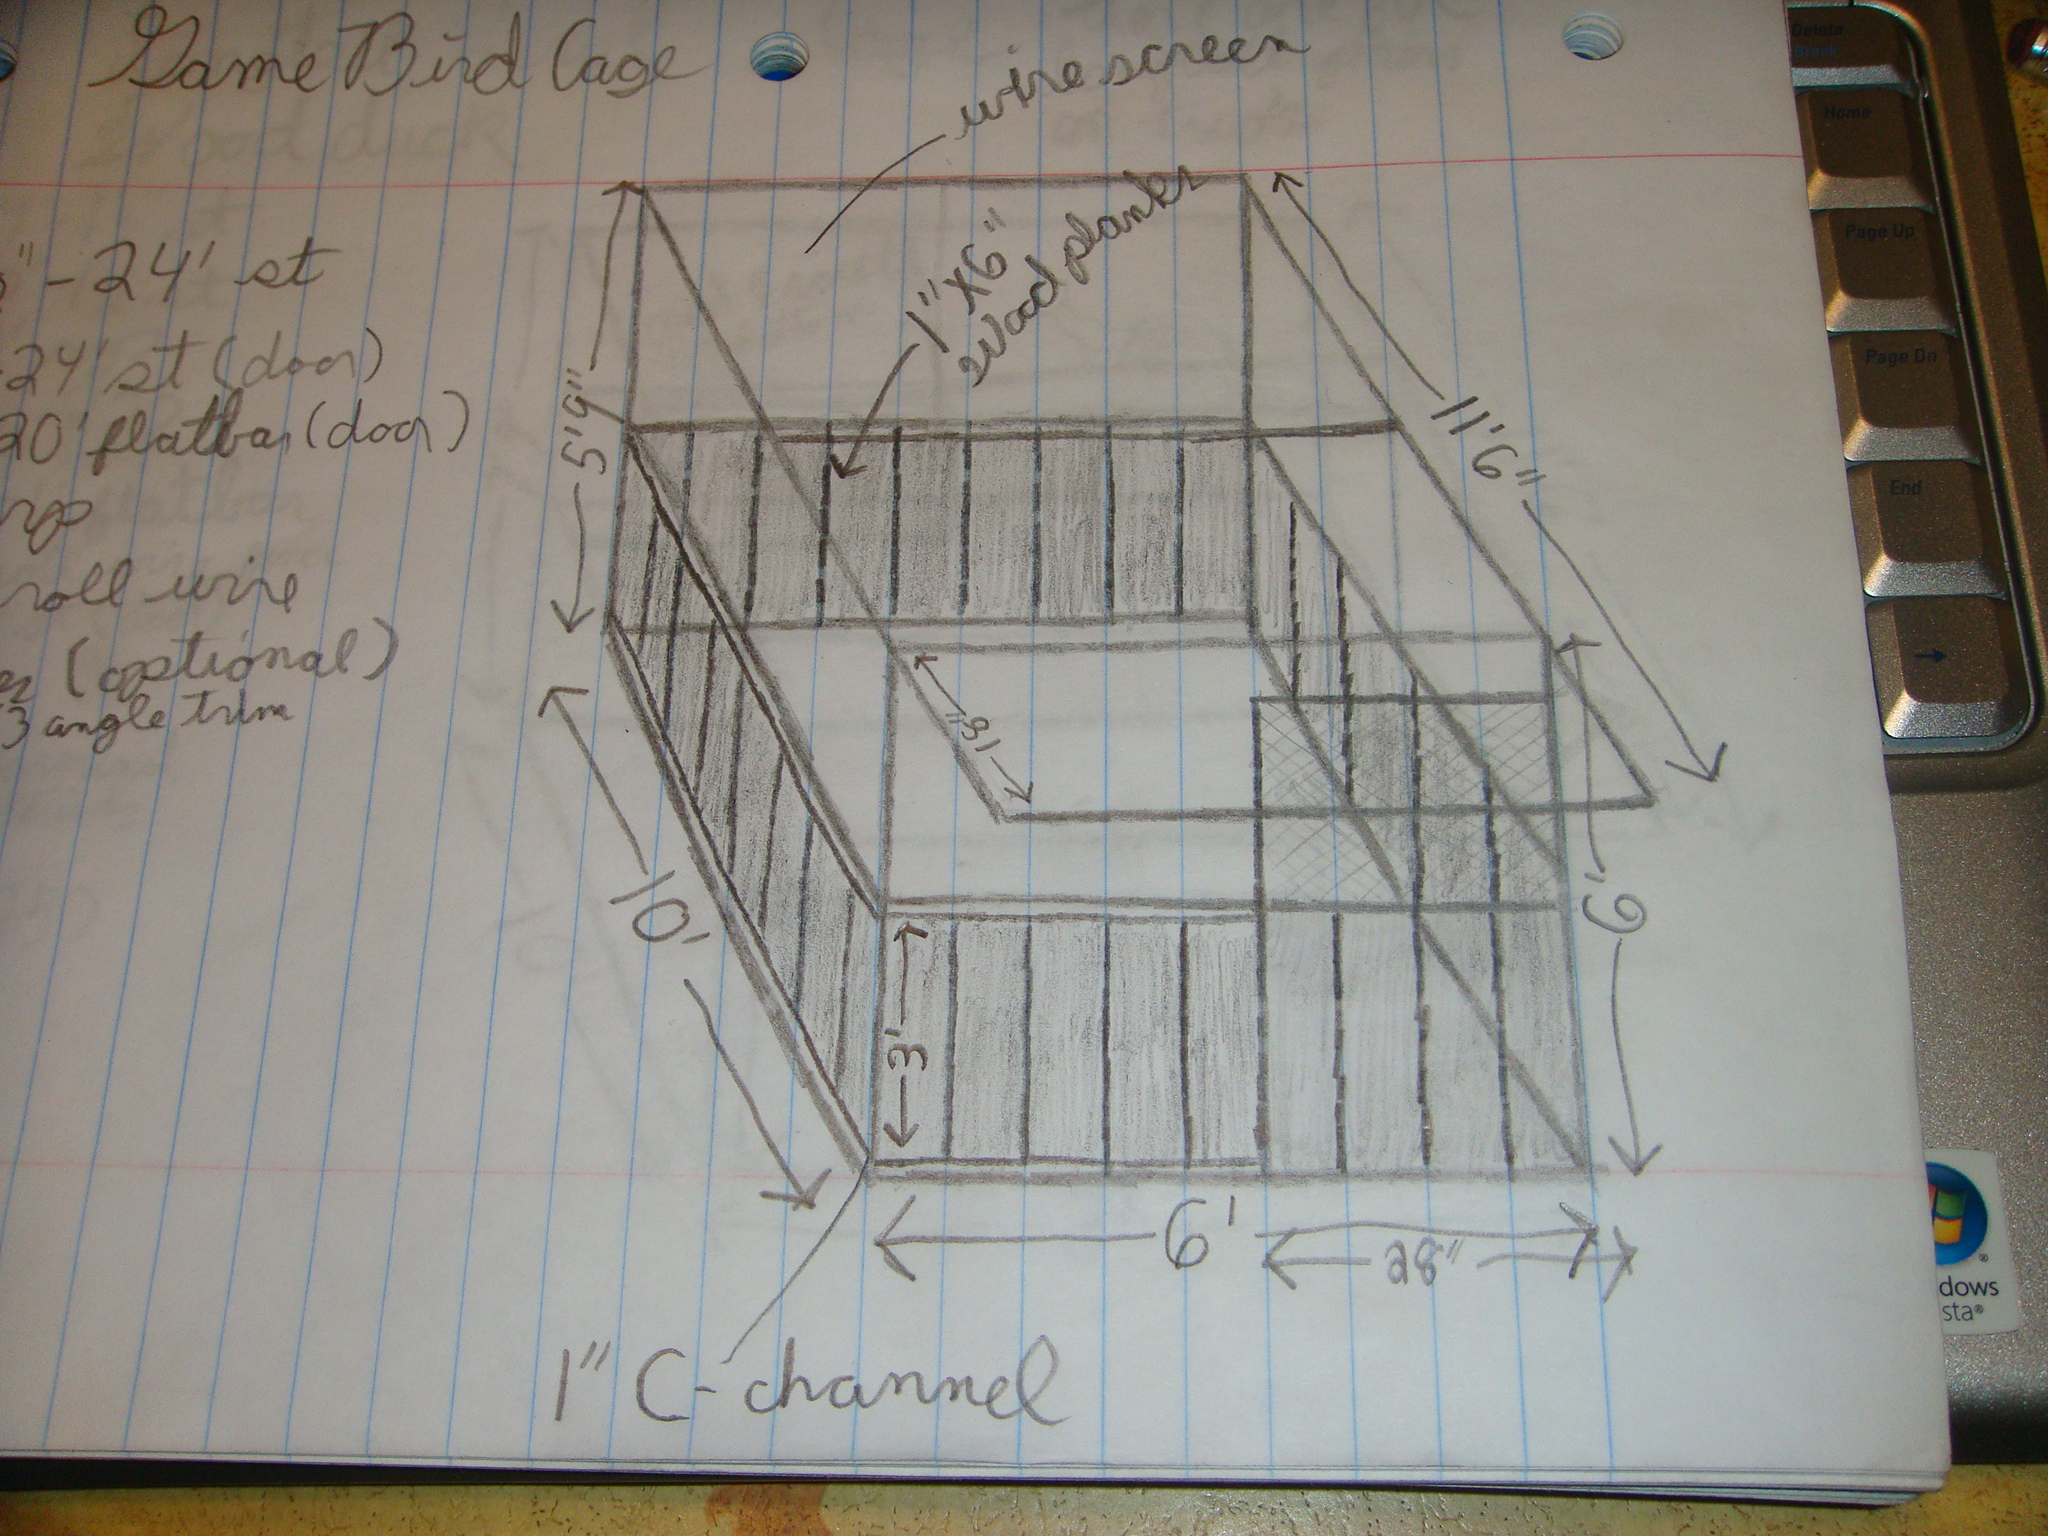 Game Bird Cage
wire screen
1"X6"
wood planks
" - 24' st
24' st (door)
20' flatbar (door)
roll wire
(optional)
3 angle trim
5'9"
11'6"
18"
10'
3'
6'
6'
28"
1" C-channel
Delete
Break
Home
Page Up
Page Dn
End
→
dows
sta®